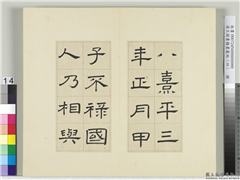 八熹平三
年正月甲
子不祿國
人乃相與
14